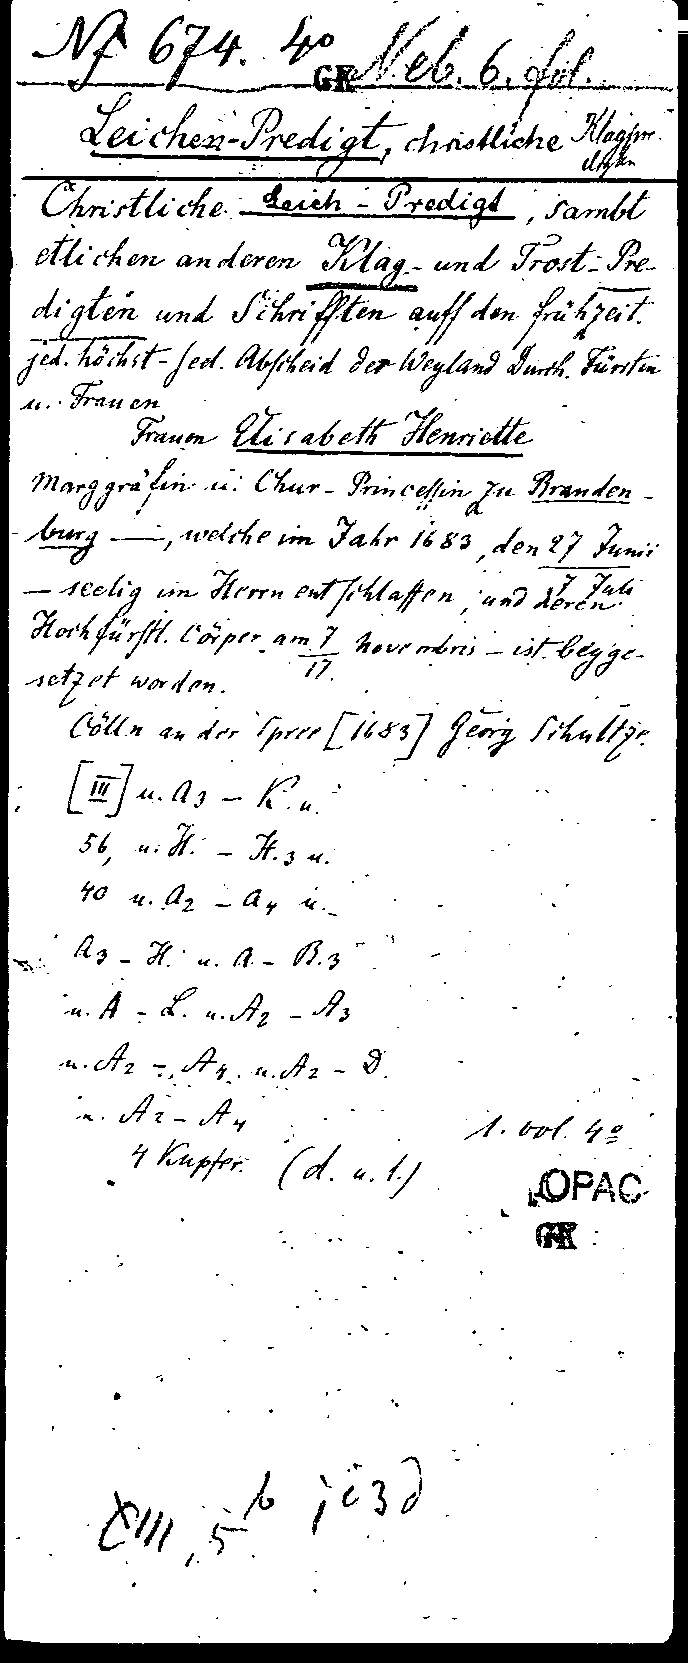 Nf 674. 4° Neb. 6. fol.
GK
Leichen-Predigt, christliche Klagpre-
digten
Christliche Leich-Predigt, sambt
etlichen anderen Klag- und Trost-Pre-
digten und Schrifften auff den frühzeit.
jed. höchst-seel. Abscheid der Weyland Durch. Fürstin
u. Frauen
Frauen Elisabeth Henriette
Marggräfin u. Chur-Princessin zu Branden-
burg —, welche im Jahr 1683, den 27 Junii
7 Juli
— seelig im Herrn entschlaffen, und deren
Hochfürstl. Cörper am 7/17. Novembris — ist beyge-
setzet worden.
Cölln an der Spree [1683] Georg Schultze.
[III] u. A3 - K. u.
56, u. H. - H.3 u.
40 u. A2 - A4 u.
A3 - H. u. A - B.3
u. A - L. u. A2 - A3
u. A2 - A4. u. A2 - D.
u. A2 - A4
1. vol. 4°
4 Kupfer. (d. u. l.)
OPAC
GK
XIII, 5 b